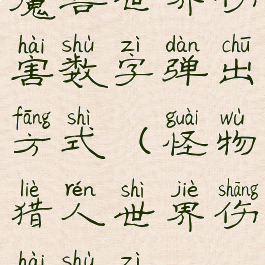 魔兽世界伤
hài shù zì dàn chū
害数字弹出
fāng shì guài wù
方式（怪物
liè rén shì jiè shāng
猎人世界伤
hài shù zì